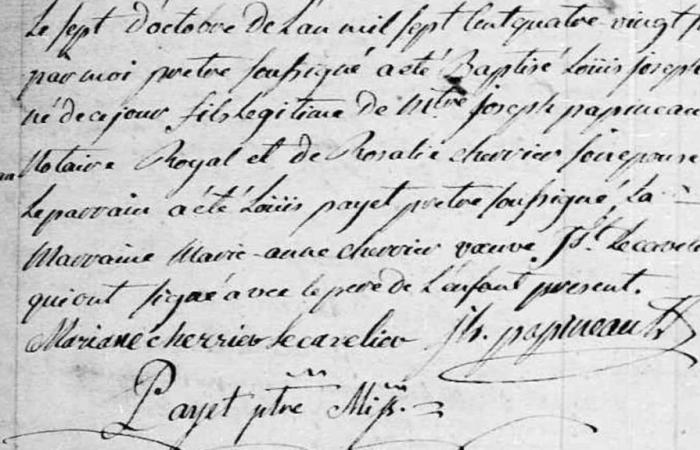 Le sept d'octobre de L'an mil sept Cent quatre vingt
par moi pretre soussigné a eté Baptisé Loüis joseph
né de ce jour fils legitime de Mtre joseph papineau
Notaire Royal et de Rosalie cherrier son epouse
Le parrain a été Loüis payet pretre soussigné, La
Marraine Marie-anne cherrier vœuve Lecaveli
qui ont signé avec le pere de L'enfant present.
Mariane cherrier lecavelier Jh. papineau
Payet ptre Miss.